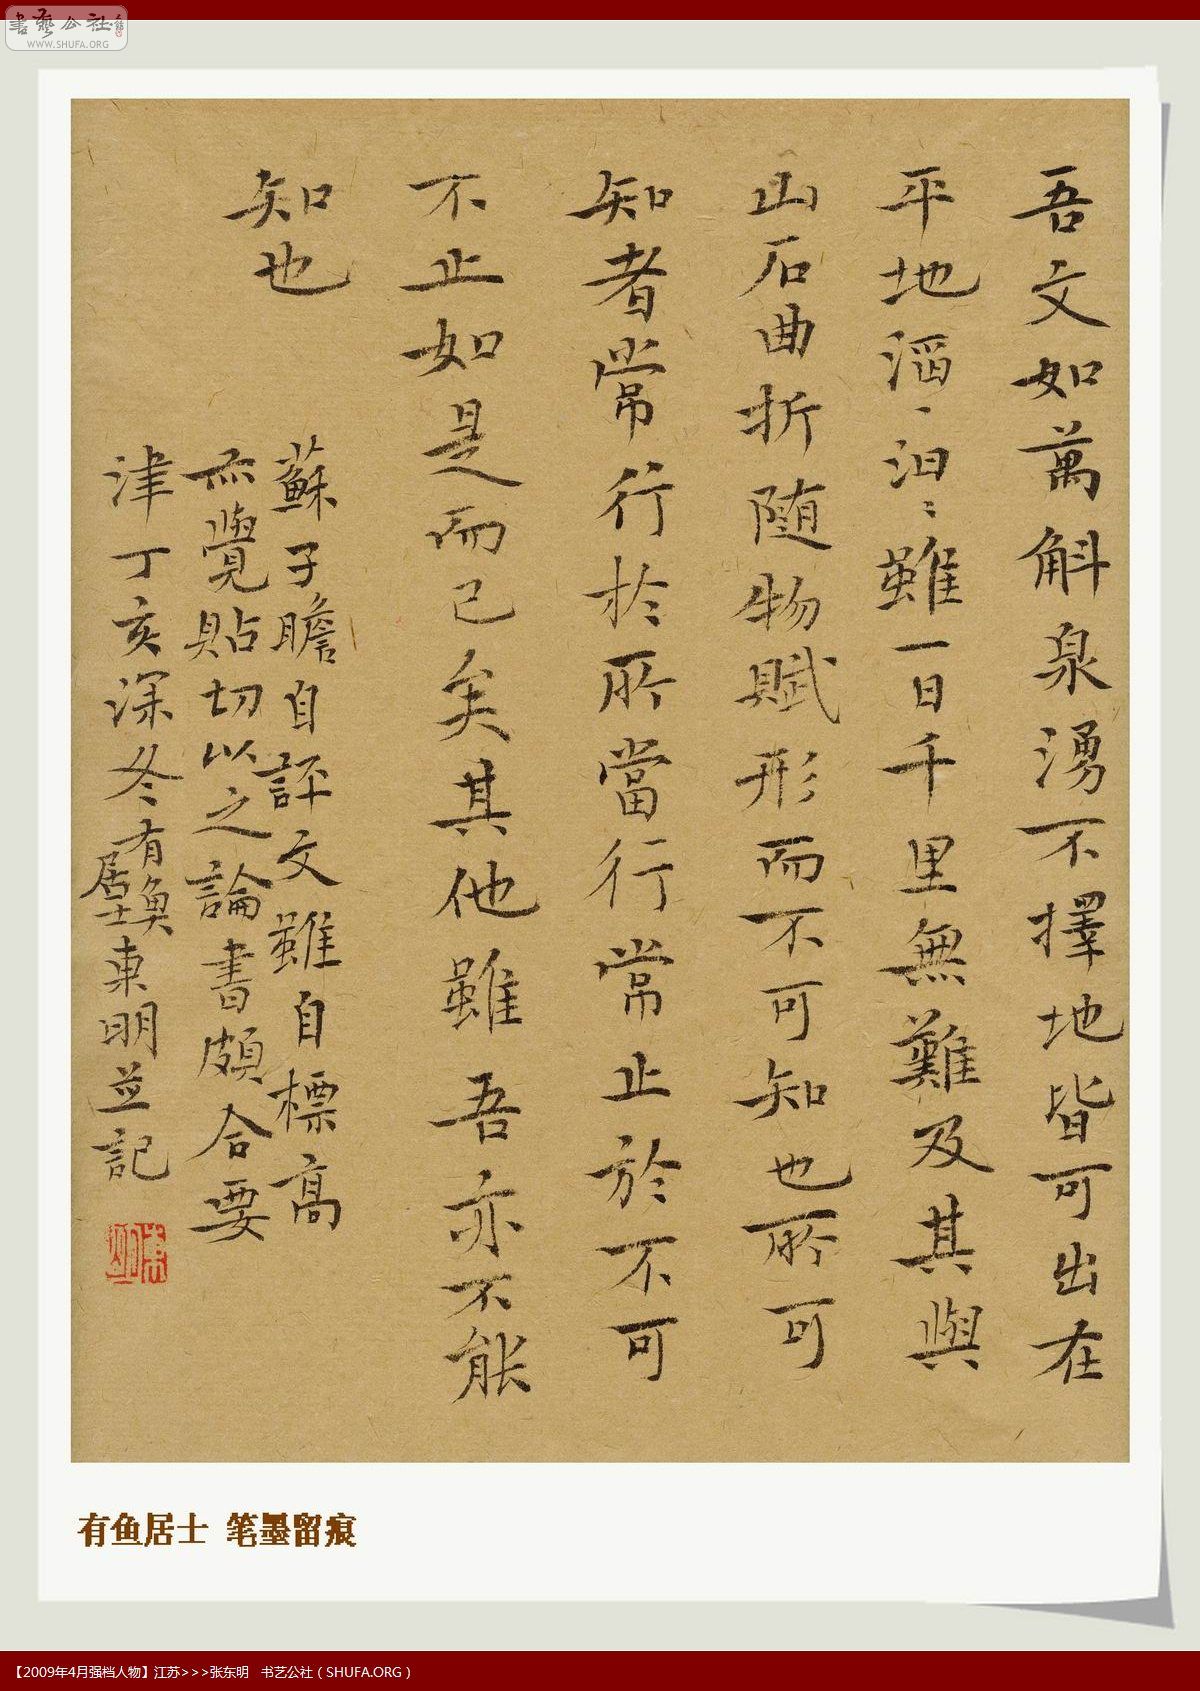 書藝公社
WWW.SHUFA.ORG
吾文如萬斛泉湧不擇地皆可出在
平地滔〻汩〻雖一日千里無難及其與
山石曲折隨物賦形而不可知也所可
知者常行於所當行常止於不可
不止如是而已矣其他雖吾亦不能
知也
蘇子瞻自評文雖自標高
亦覺貼切以之論書頗合要
津丁亥深冬有魚居士東明並記
有鱼居士 笔墨留痕
【2009年4月强档人物】江苏>>>张东明 书艺公社（SHUFA.ORG）